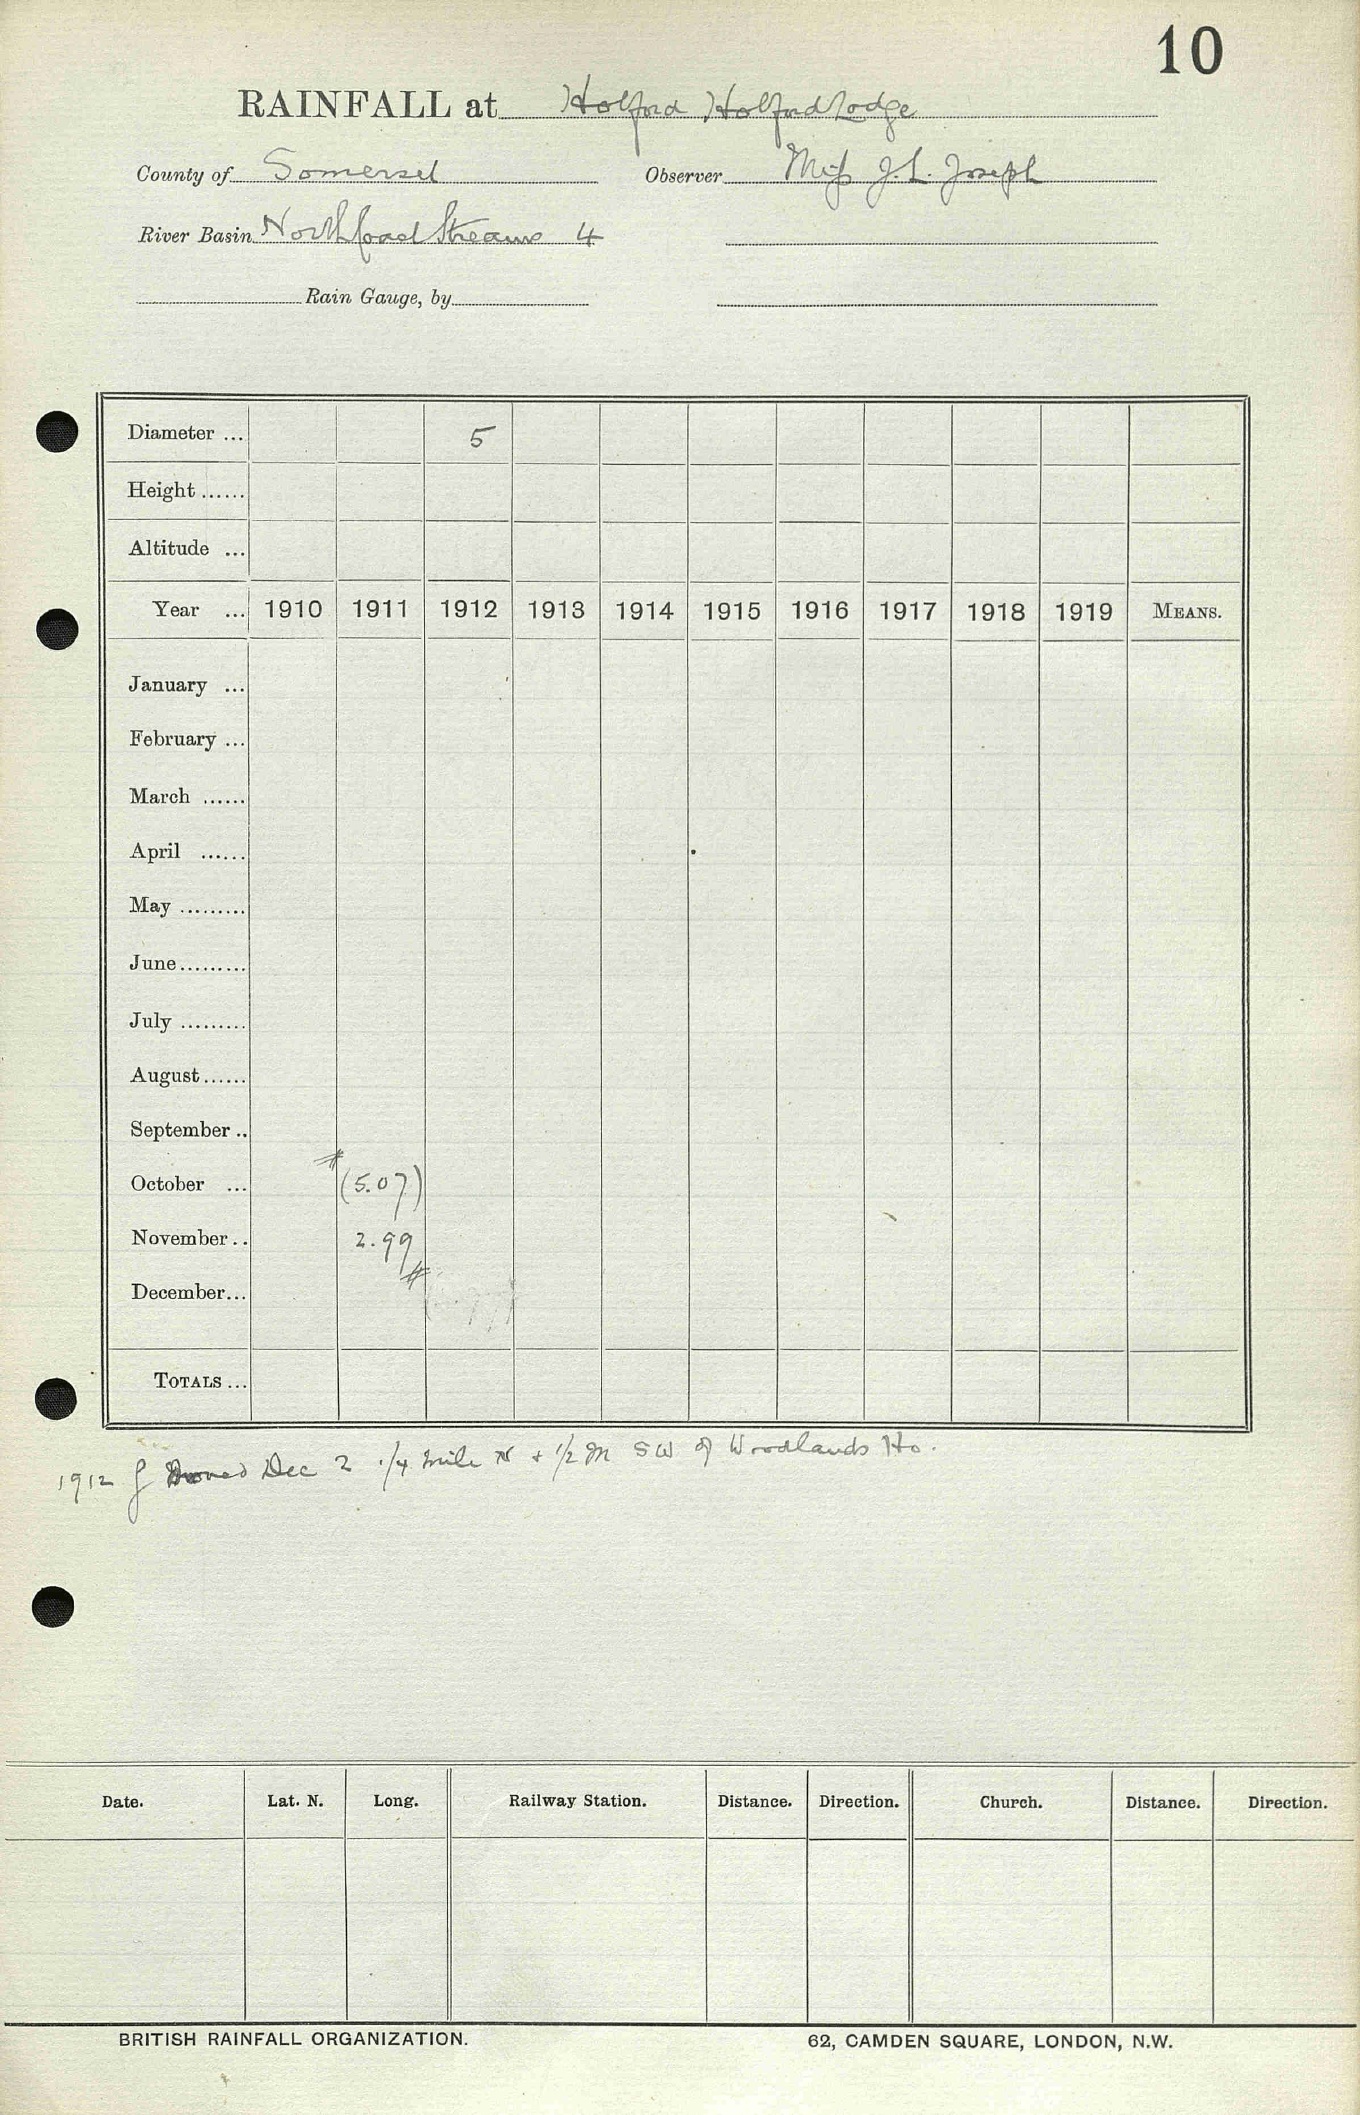 10
RAINFALL at Holford Holford Lodge
County of Somerset Observer Miss J. L. Joseph
River Basin North Coast Streams 4
Rain Gauge, by
Diameter ... 5
Height ......
Altitude ...
Year ... 1910 1911 1912 1913 1914 1915 1916 1917 1918 1919 MEANS.
January ...
February ...
March ......
April ......
May .........
June.........
July .........
August......
September ..
October ... (5.07)
November.. 2.99
December...
TOTALS ...
1912 g moved Dec 2 1/4 mile N + 1/2 M SW of Woodlands Ho.
Date. Lat. N. Long. Railway Station. Distance. Direction. Church. Distance. Direction.
BRITISH RAINFALL ORGANIZATION. 62, CAMDEN SQUARE, LONDON, N.W.